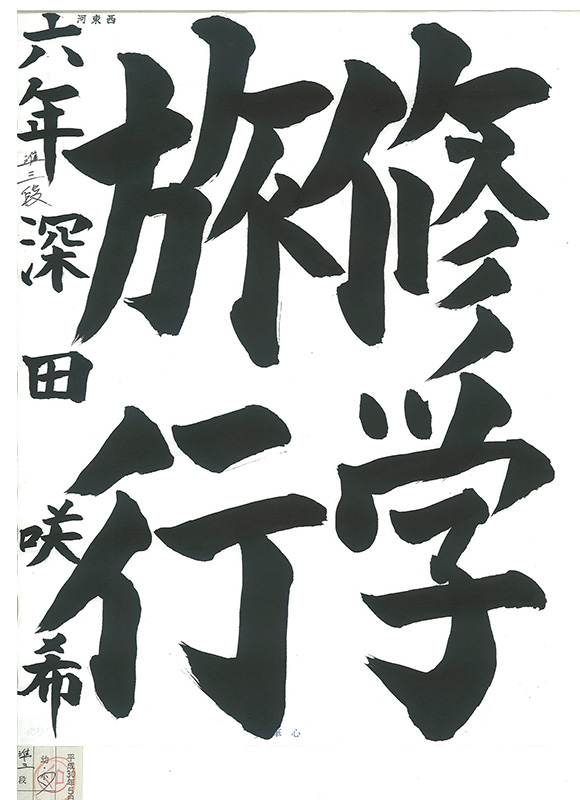 修学
旅行
六年 深田咲希
準三段
河東西
準三段
平成30年5月